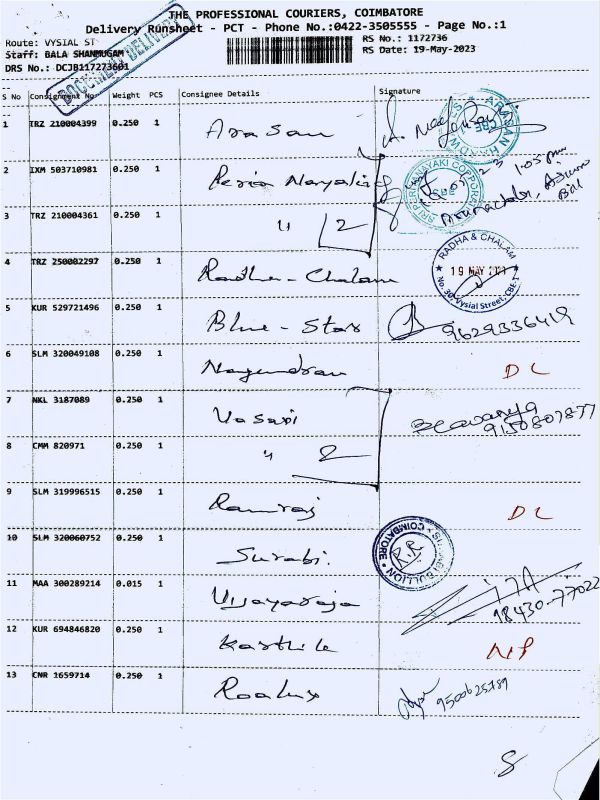 THE PROFESSIONAL COURIERS, COIMBATORE
Delivery Runsheet - PCT - Phone No.:0422-3505555 - Page No.:1
Route: VYSIAL ST RS No.: 1172736
Staff: BALA SHANMUGAM RS Date: 19-May-2023
DRS No.: DCJB117273601
DOCUMENT DELIVERY
S No Consignment No Weight PCS Consignee Details Signature
1 TRZ 210004399 0.250 1 Arasan
2 IXM 503710981 0.250 1 Peria Nayaki
SRI PERIYANAYAKI CORPORATION
1.05 pm
3 TRZ 210004361 0.250 1 " 2
4 TRZ 250002297 0.250 1 Radha - Chalam
RADHA & CHALAM
19 MAY
No. 30, Vysial Street, CBE-1
5 KUR 529721496 0.250 1 Blue - Star 9629336419
6 SLM 320049108 0.250 1 Nagendran DL
7 NKL 3187089 0.250 1 Vasavi
9150807877
8 CMM 820971 0.250 1 " 2
9 SLM 319996515 0.250 1 Ramraj DL
10 SLM 320060752 0.250 1 Surabi.
BULLION COIMBATORE
R.R
11 MAA 300289214 0.015 1 Vijayaraja
18430-77022
12 KUR 694846820 0.250 1 Karthik NP
13 CNR 1659714 0.250 1 9500625789
8